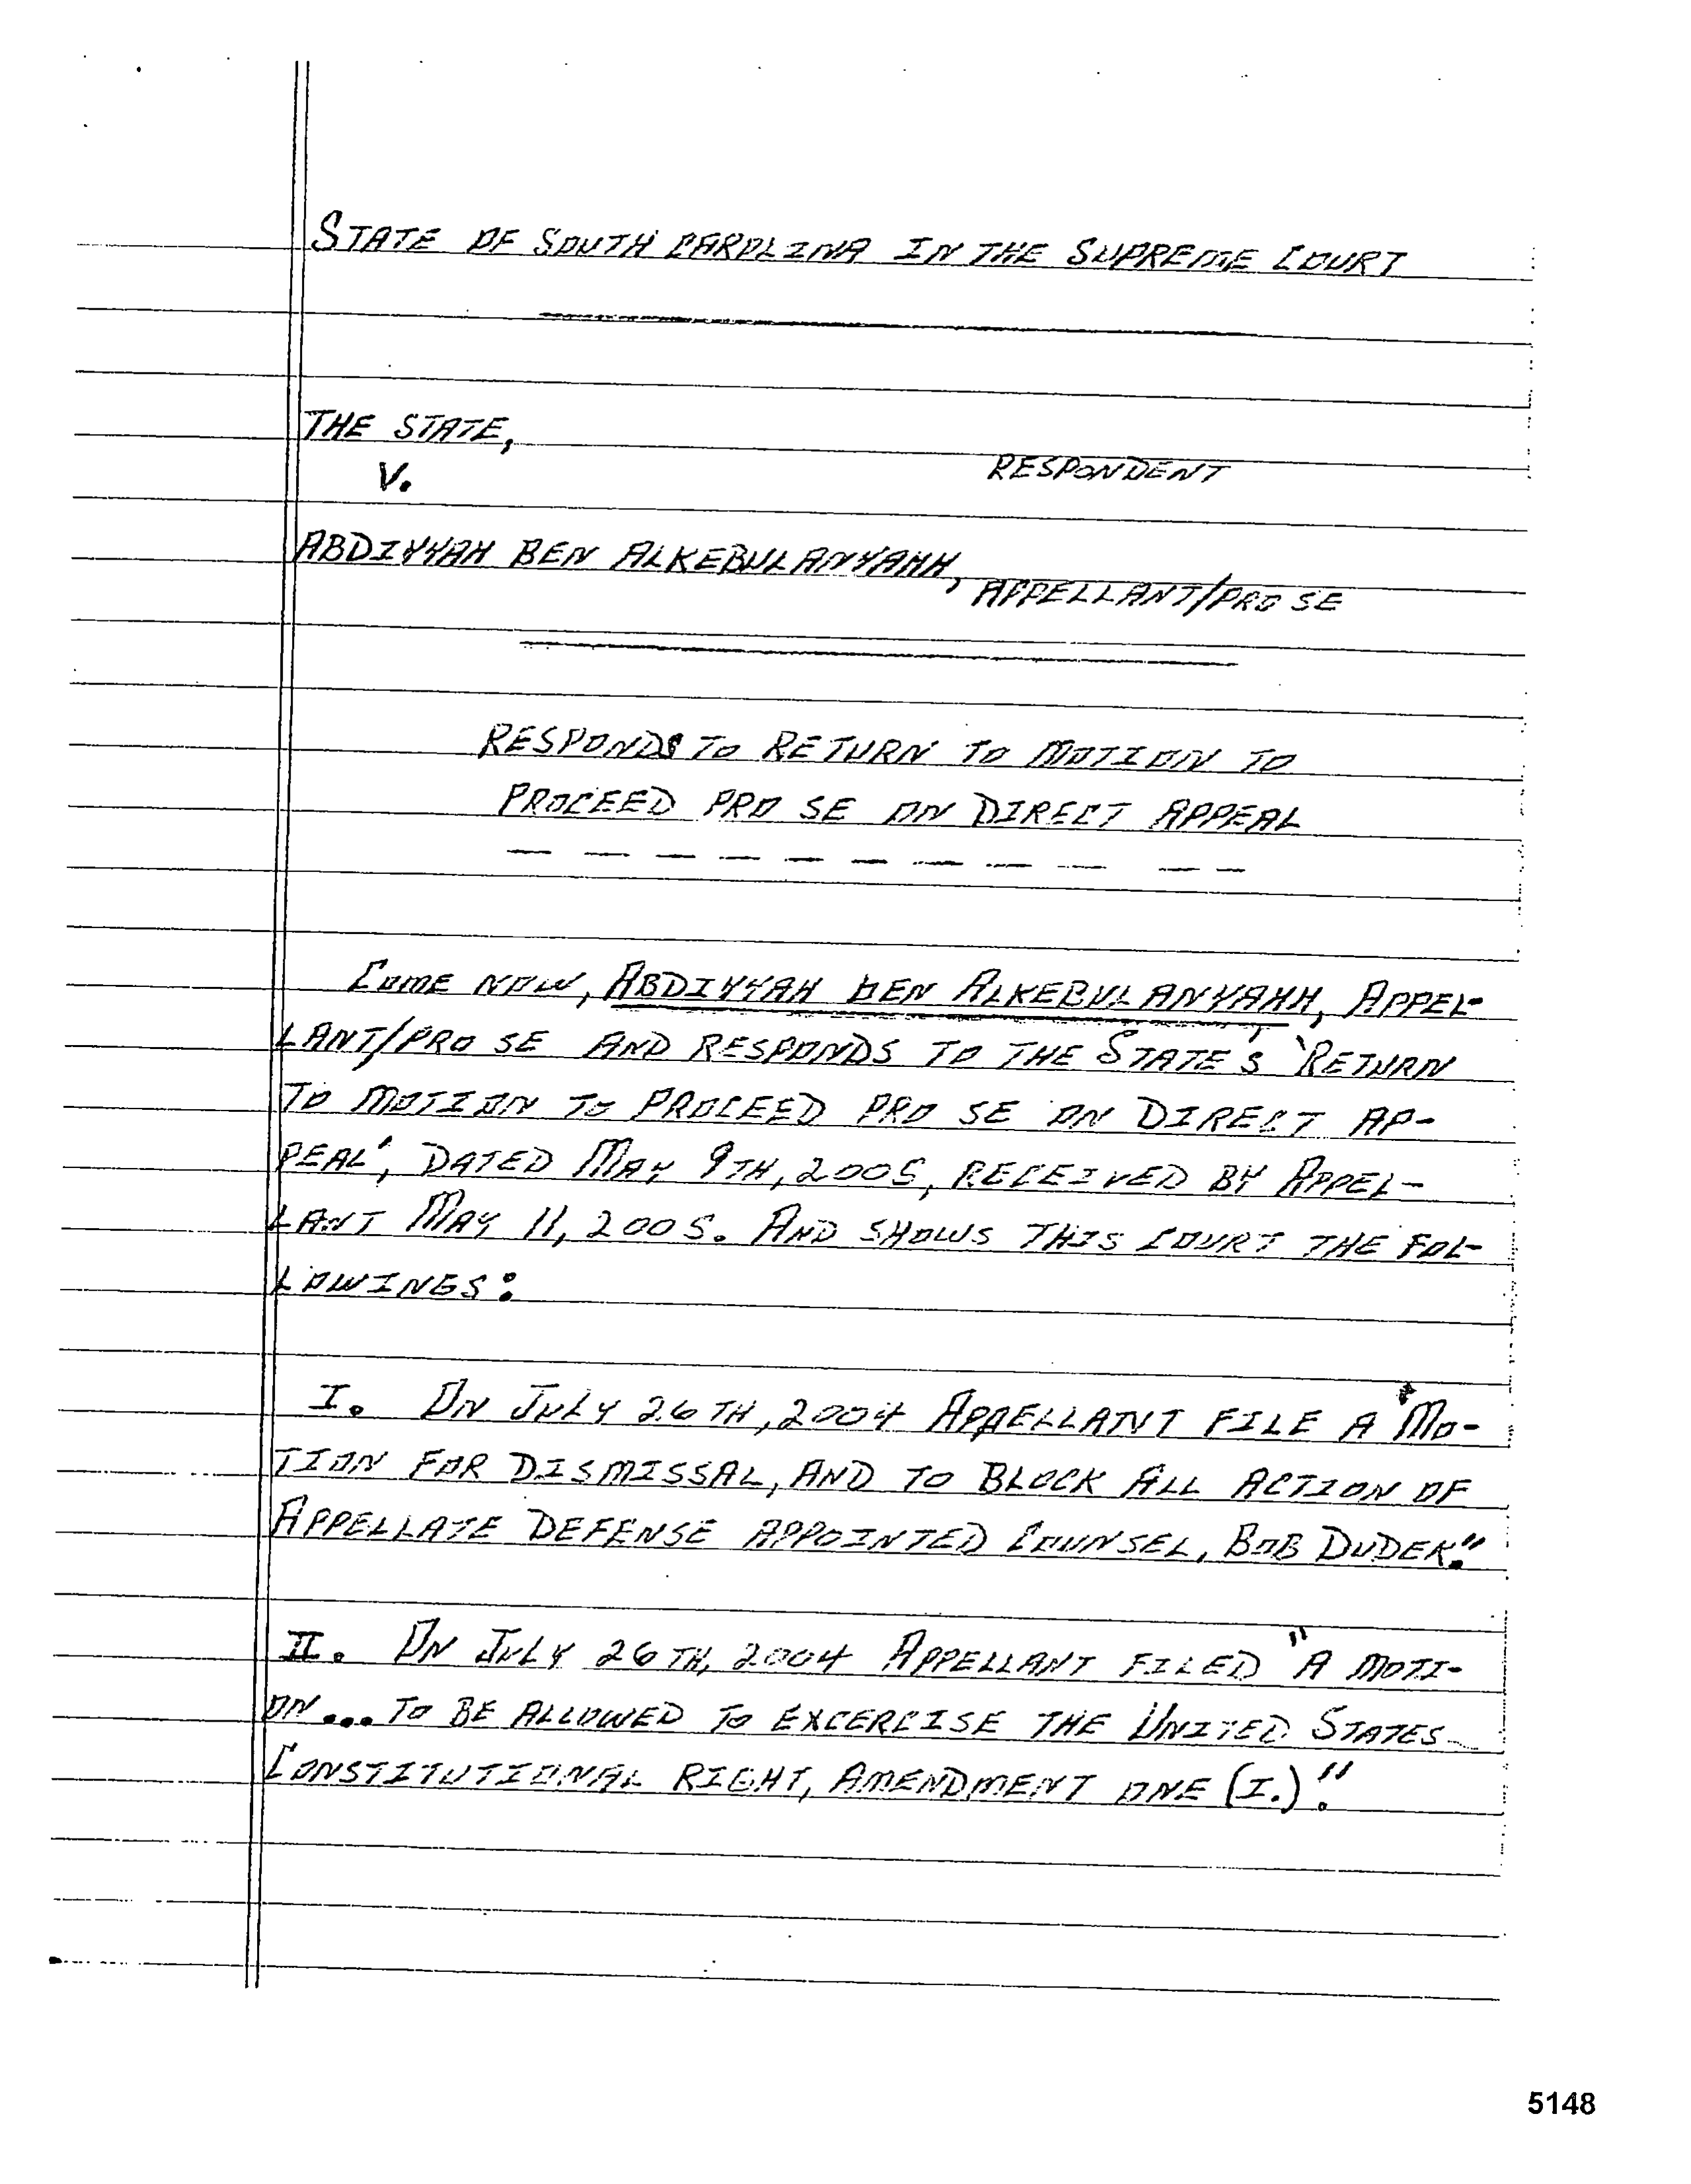 STATE OF SOUTH CAROLINA IN THE SUPREME COURT
THE STATE,
RESPONDENT
V.
ABDIYYAH BEN ALKEBULANYAHH,
APPELLANT/PRO SE
RESPONDS TO RETURN TO MOTION TO
PROCEED PRO SE ON DIRECT APPEAL
COME NOW, ABDIYYAH BEN ALKEBULANYAHH, APPEL-
LANT/PRO SE AND RESPONDS TO THE STATE'S 'RETURN
TO MOTION TO PROCEED PRO SE ON DIRECT AP-
PEAL', DATED MAY 9TH, 2005, RECEIVED BY APPEL-
LANT MAY 11, 2005. AND SHOWS THIS COURT THE FOL-
LOWINGS:
I. ON JULY 26TH, 2004 APPELLANT FILE A "MO-
TION FOR DISMISSAL, AND TO BLOCK ALL ACTION OF
APPELLATE DEFENSE APPOINTED COUNSEL, BOB DUDEK."
II. ON JULY 26TH, 2004 APPELLANT FILED "A MOTI-
ON... TO BE ALLOWED TO EXCERCISE THE UNITED STATES
CONSTITUTIONAL RIGHT, AMENDMENT ONE (I.)."
5148